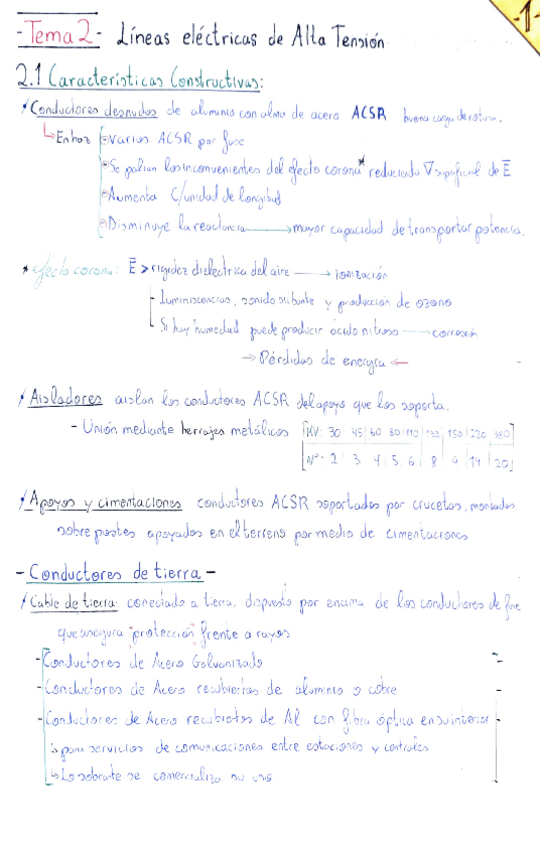 -1-
-Tema 2- Líneas eléctricas de Alta Tensión.
2.1 Características Constructivas:
Conductores desnudos de aluminio con alma de acero ACSR buena carga de rotura.
En haz varios ACSR por fase
Se palian los inconvenientes del efecto corona* reduciendo ∇ superficial de E
Aumenta C/unidad de longitud
Disminuye la reactancia → mayor capacidad de transportar potencia.
* efecto corona: E > rigidez dielectrica del aire → ionización
- Luminiscencias, sonido silbante y producción de ozono
Si hay humedad puede producir ácido nitroso → corrosión
→ Pérdidas de energía ←
Aisladores aislan los conductores ACSR del apoyo que los soporta.
- Unión mediante herrajes metálicos KV: 30 45 60 80 110 132 150 220 380
Nº: 2 3 4 5 6 8 9 14 20
Apoyos y cimentaciones conductores ACSR soportados por crucetas, montadas
sobre postes apoyados en el terreno por medio de cimentaciones
- Conductores de tierra -
Cable de tierra: conectado a tierra, dispuesto por encima de los conductores de fase
que asegura "protección" frente a rayos
- Conductores de Acero Galvanizado
- Conductores de Acero recubiertos de aluminio o cobre
- Conductores de Acero recubiertos de Al con fibra óptica en su interior
↳ para servicios de comunicaciones entre estaciones y centrales
↳ Lo sobrante se comercializa su uso